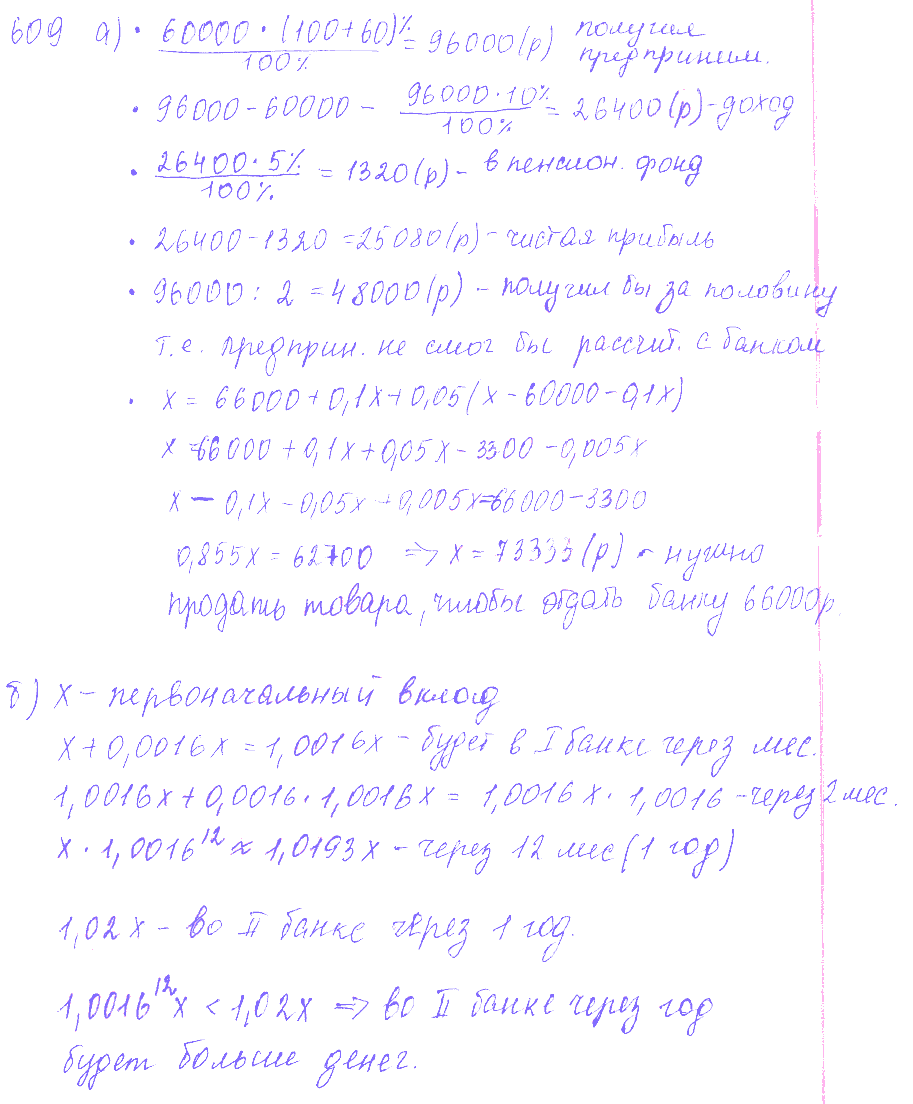 609 а) • 60000 • (100+60)% / 100% = 96000(р) получил предприним.
• 96000 - 60000 - 96000 • 10% / 100% = 26400(р) - доход
• 26400 • 5% / 100% = 1320(р) - в пенсион. фонд
• 26400 - 1320 = 25080(р) - чистая прибыль
• 96000 : 2 = 48000(р) - получил бы за половину
т.е. предприн. не смог бы рассчит. с банком
• x = 66000 + 0,1x + 0,05(x - 60000 - 0,1x)
x = 66000 + 0,1x + 0,05x - 3300 - 0,005x
x - 0,1x - 0,05x + 0,005x = 66000 - 3300
0,855x = 62700 => x = 73333(р) - нужно
продать товара, чтобы отдать банку 66000р.
б) x - первоначальный вклад
x + 0,0016x = 1,0016x - будет в I банке через мес.
1,0016x + 0,0016 • 1,0016x = 1,0016x • 1,0016 - через 2 мес.
x • 1,0016¹² ≈ 1,0193x - через 12 мес (1 год)
1,02x - во II банке через 1 год.
1,0016¹²x < 1,02x => во II банке через год
будет больше денег.